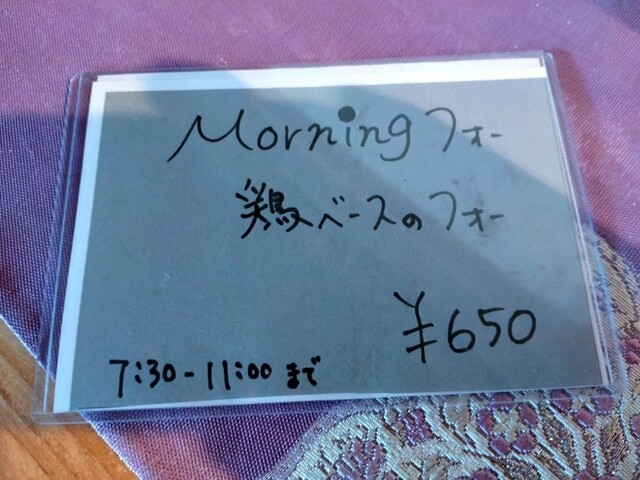 Morningフォー
鶏ベースのフォー
¥650
7:30-11:00まで